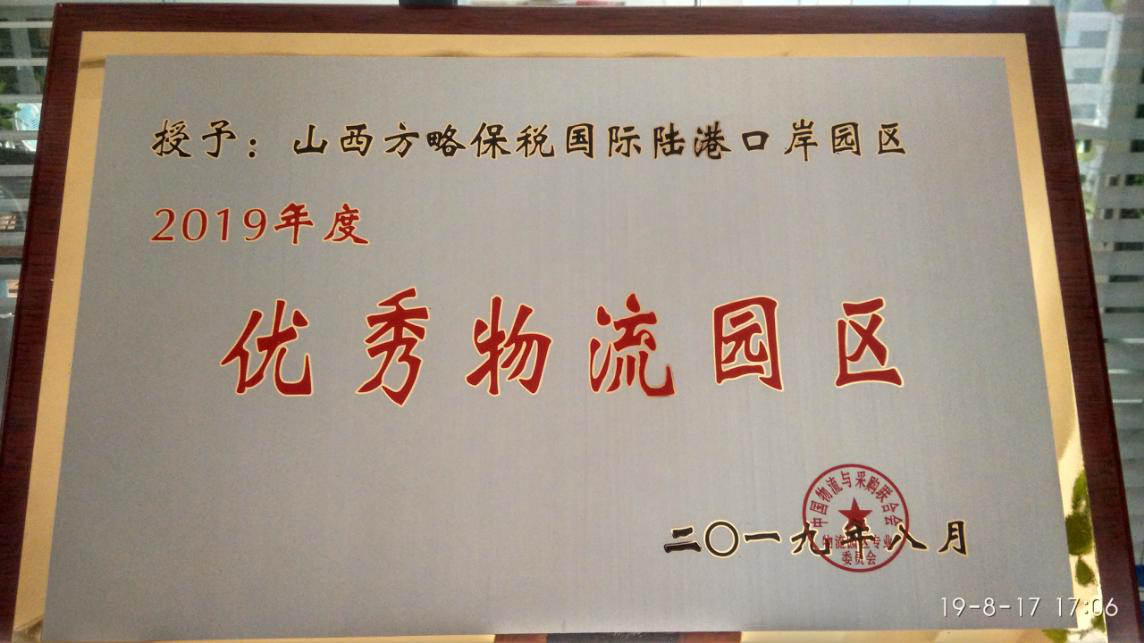 授予：山西方略保税国际陆港口岸园区
2019年度
优秀物流园区
中国物流与采购联合会
物流园区专业
委员会
二〇一九年八月
19-8-17 17:06